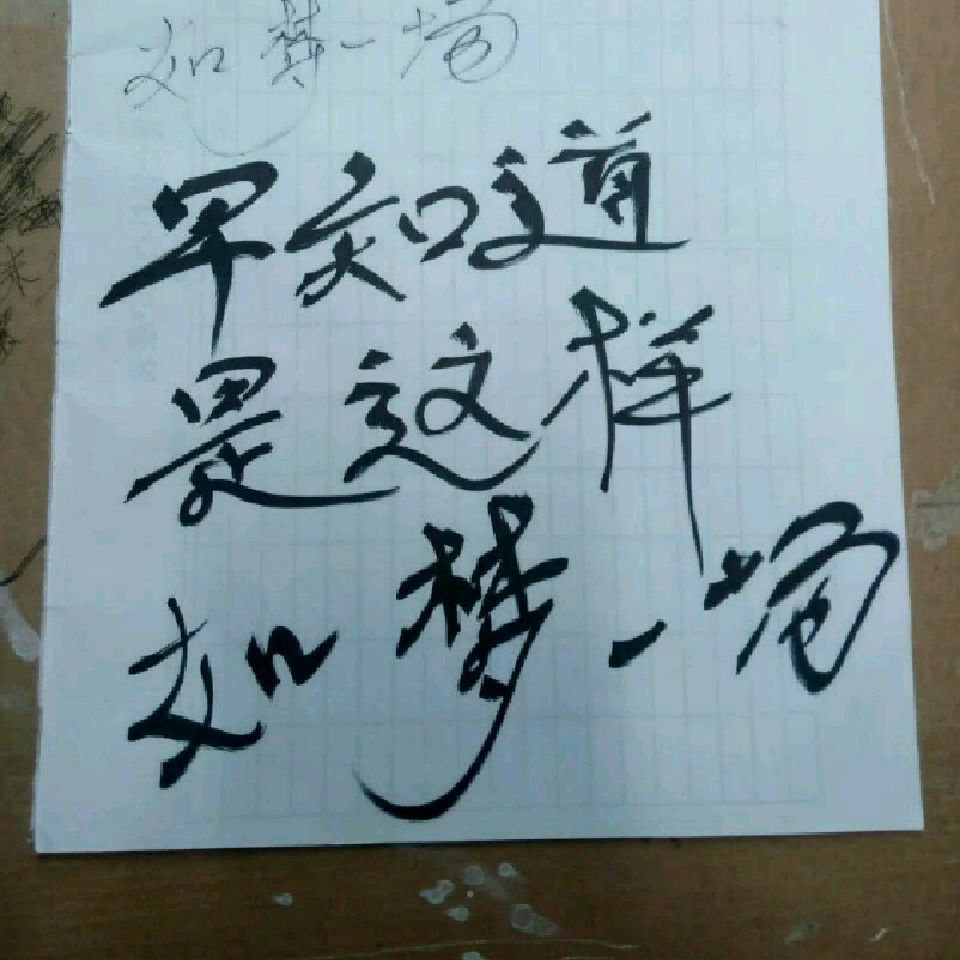 如梦一场
早知道
是这样
如梦一场